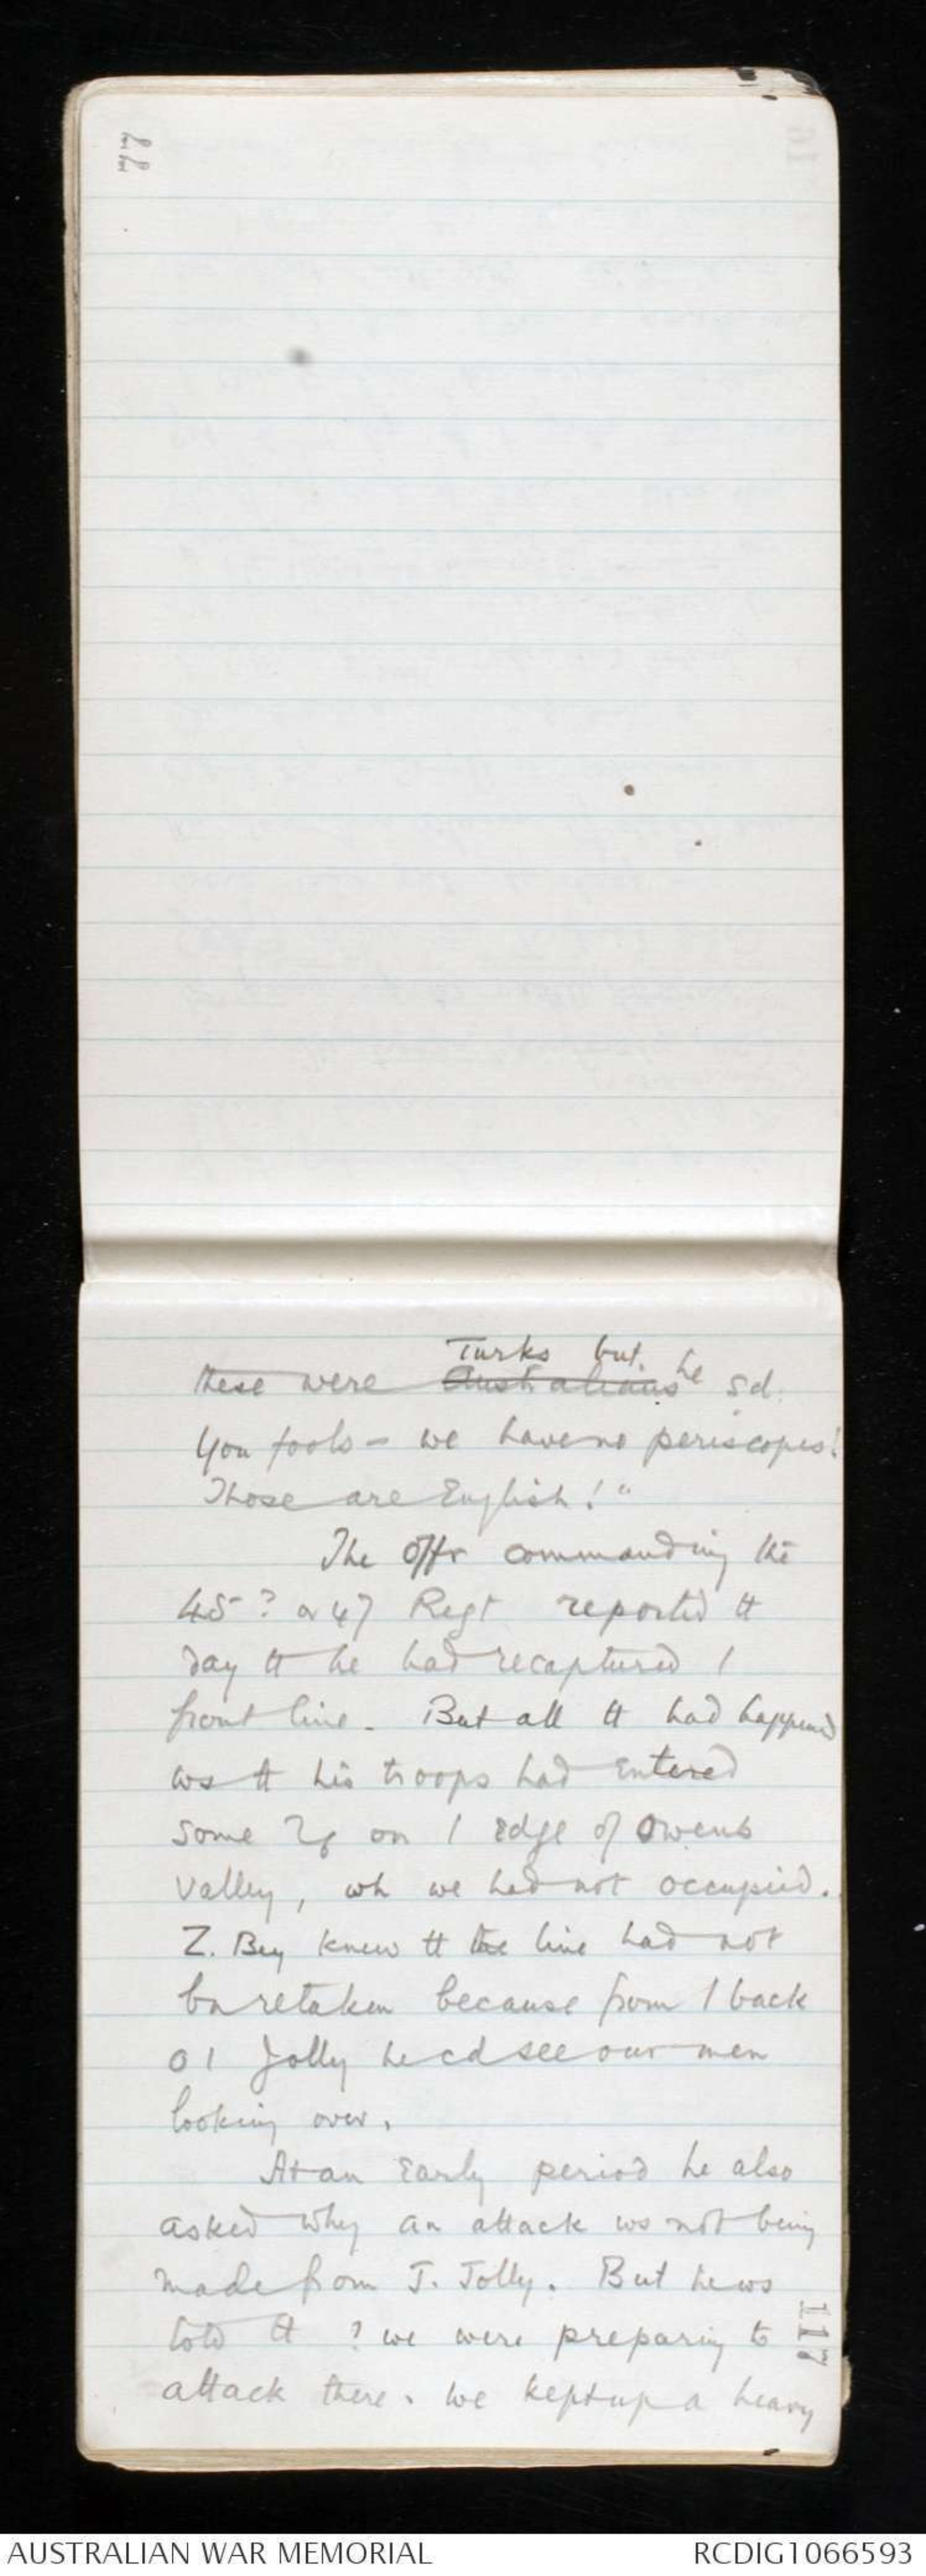 77
Turks but
these were Australians he sd.
You fools - we have no periscopes!
Those are English!"
The offr commanding the
45? or 47 Regt reported tt
day tt he had recaptured /
front line. But all tt had happened
ws tt his troops had entered
some on / edge of Owens
Valley, wh we had not occupied.
Z. Bey knew tt the line had not
bn retaken because from / back
o / Jolly he cd see our men
looking over.
At an early period he also
asked why an attack ws not being
made from J. Jolly. But he ws
told tt ? we were preparing to
attack there. We kept up a heavy
117
AUSTRALIAN WAR MEMORIAL
RCDIG1066593